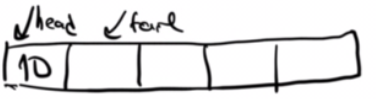 head tail
10